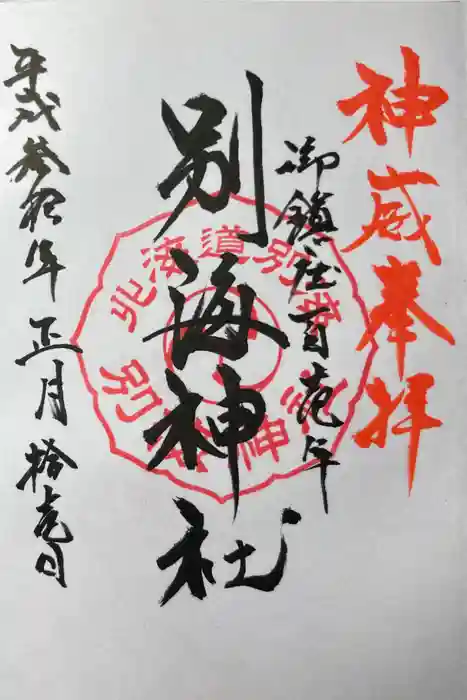 神威奉拝
御鎮座百壱年
別海神社
北海道別海
別海神社
平成参拾年正月拾壱日